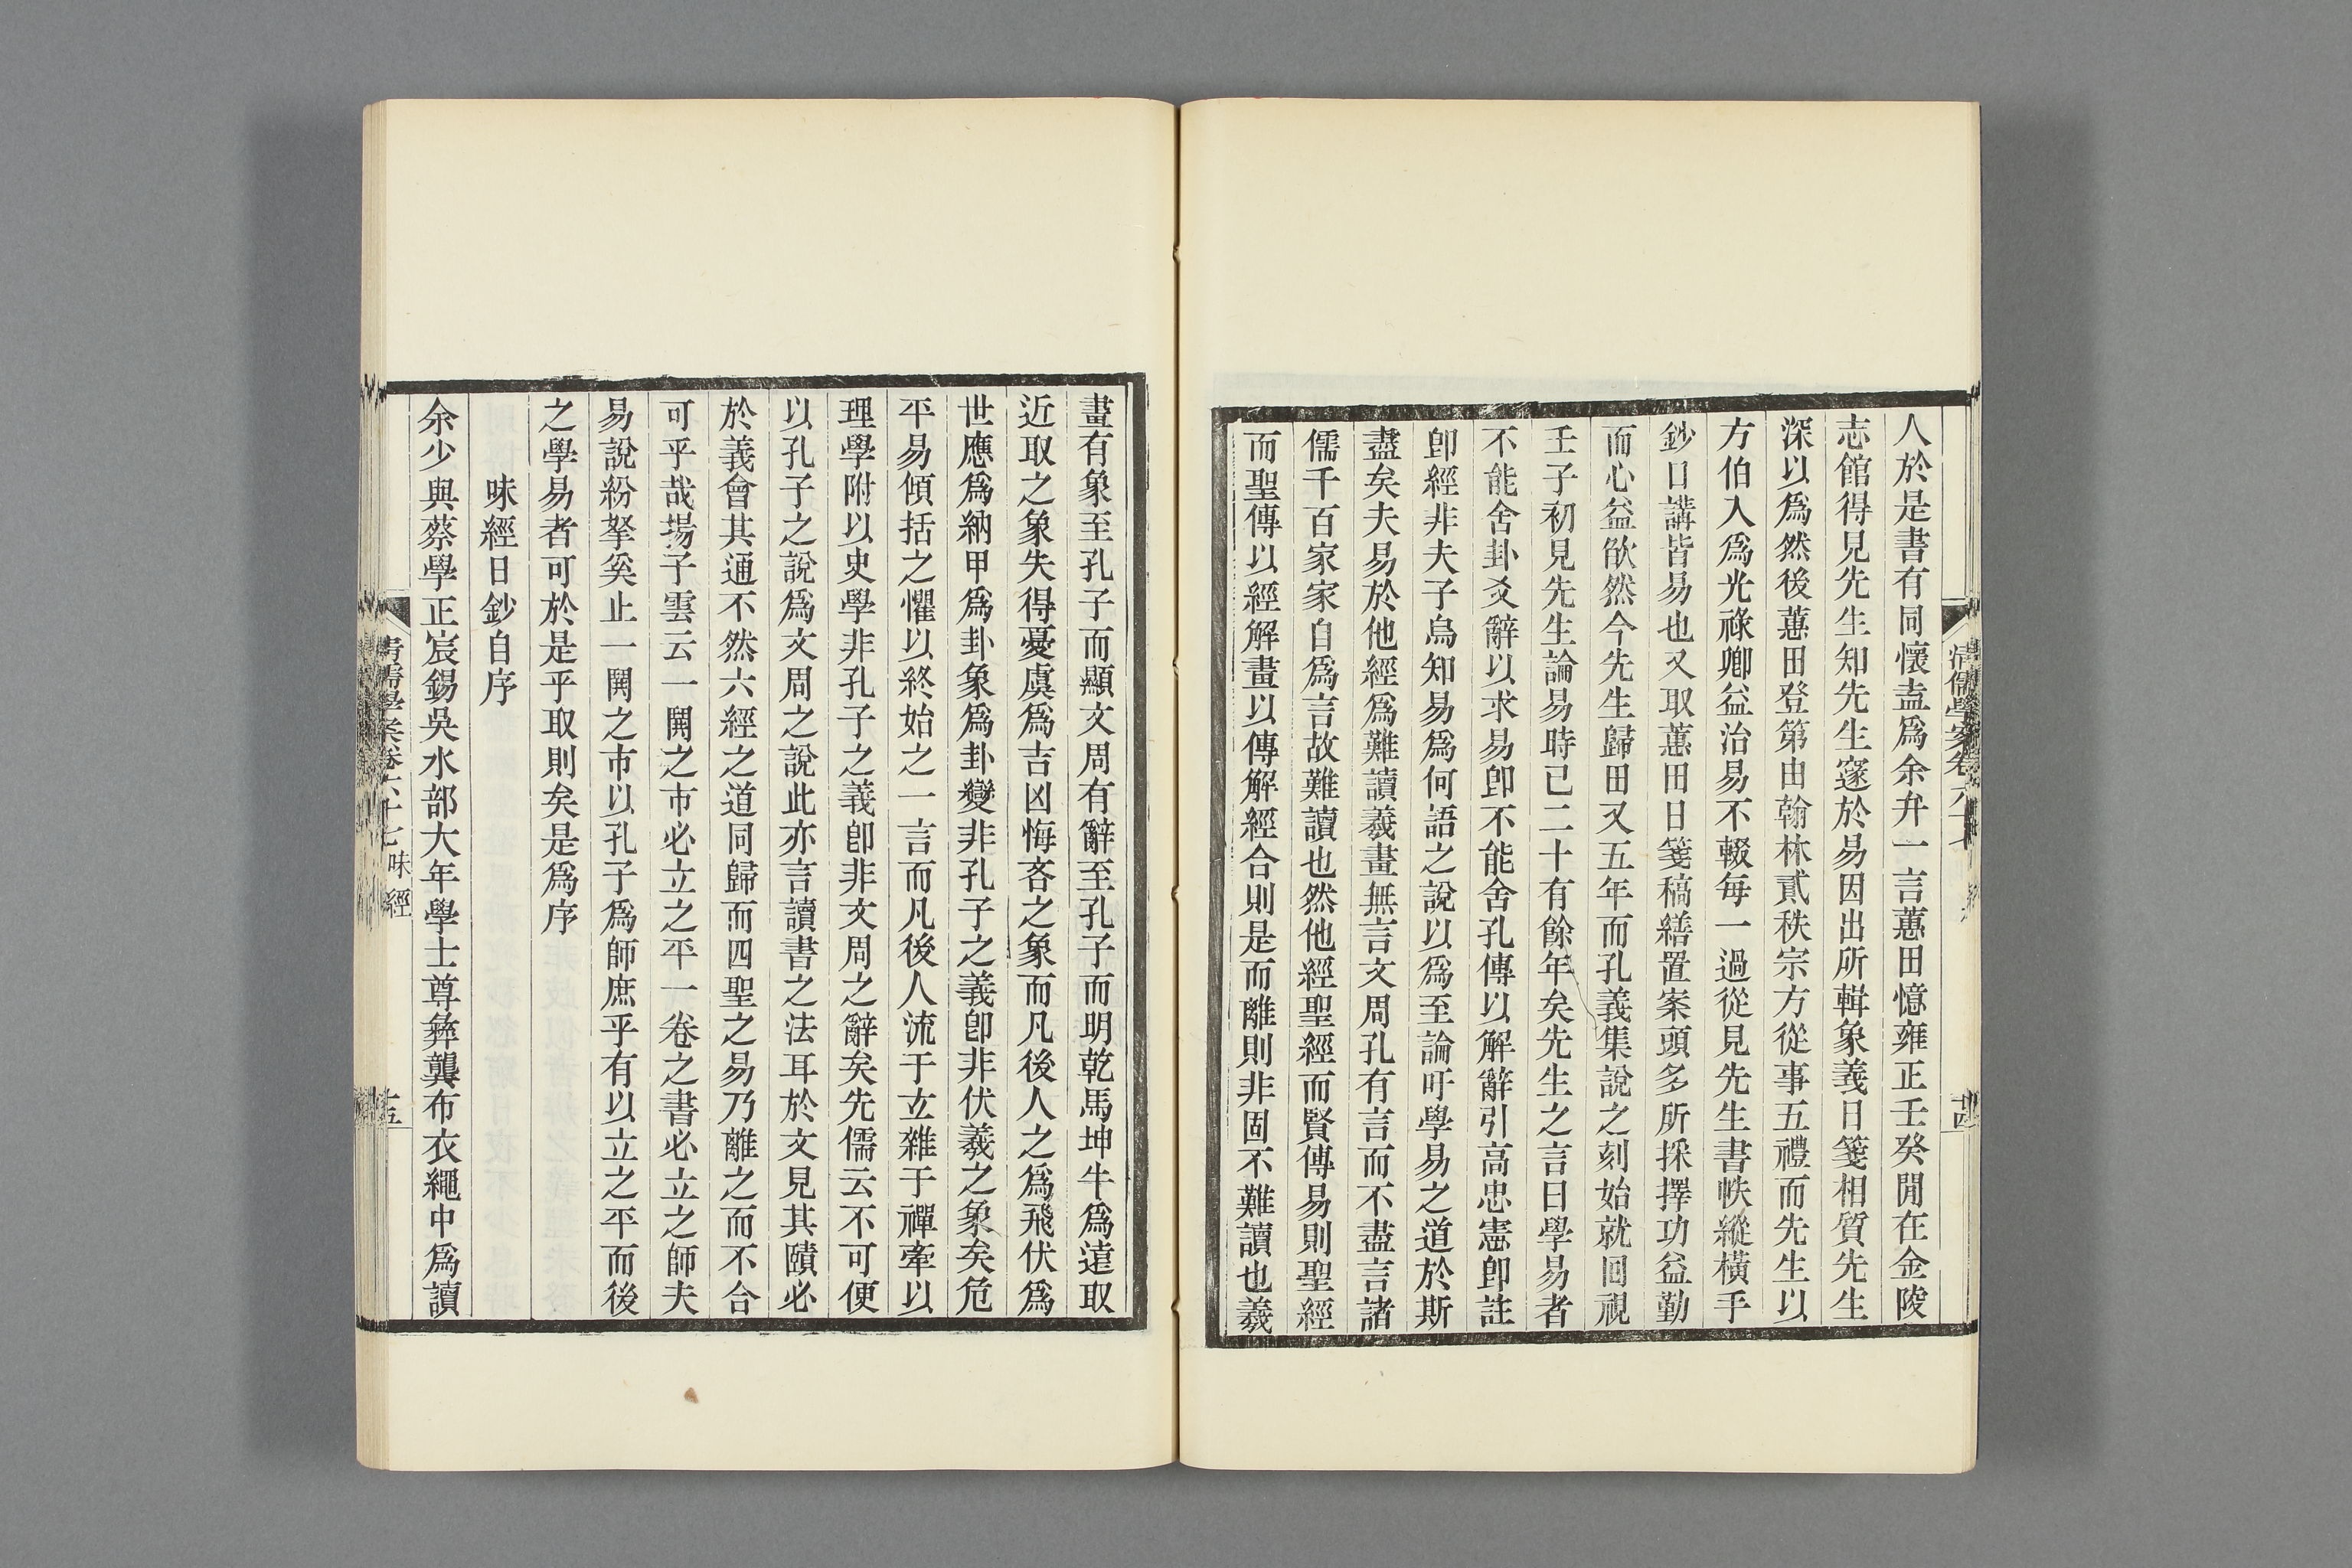 人於是書有同懷盍爲余弁一言蕙田憶雍正壬癸閒在金陵
志館得見先生知先生邃於易因出所輯象義日箋相質先生
深以爲然後蕙田登第由翰林貳秩宗方從事五禮而先生以
方伯入爲光祿卿益治易不輟每一過從見先生書帙縱橫手
鈔口講皆易也又取蕙田日箋稿繕置案頭多所採擇功益勤
而心益欿然今先生歸田又五年而孔義集說之刻始就回視
壬子初見先生論易時已二十有餘年矣先生之言曰學易者
不能舍卦爻辭以求易卽不能舍孔傳以解辭引高忠憲卽註
卽經非夫子烏知易爲何語之說以爲至論吁學易之道於斯
盡矣夫易於他經爲難讀羲畫無言文周孔有言而不盡言諸
儒千百家家自爲言故難讀也然他經聖經而賢傳易則聖經
而聖傳以經解畫以傳解經合則是而離則非固不難讀也羲
清儒學案卷六十七
十四
畫有象至孔子而顯文周有辭至孔子而明乾馬坤牛爲遠取
近取之象失得憂虞爲吉凶悔吝之象而凡後人之爲飛伏爲
世應爲納甲爲卦象爲卦變非孔子之義卽非伏羲之象矣危
平易傾括之懼以終始之一言而凡後人流于玄雜于禪牽以
理學附以史學非孔子之義卽非文周之辭矣先儒云不可便
以孔子之說爲文周之說此亦言讀書之法耳於文見其賾必
於義會其通不然六經之道同歸而四聖之易乃離之而不合
可乎哉揚子雲云一閧之市必立之平一卷之書必立之師夫
易說紛拏奚止一閧之市以孔子爲師庶乎有以立之平而後
之學易者可於是乎取則矣是爲序
味經日鈔自序
余少與蔡學正宸錫吳水部大年學士尊彝龔布衣繩中爲讀
清儒學案卷六十七 味經
十五